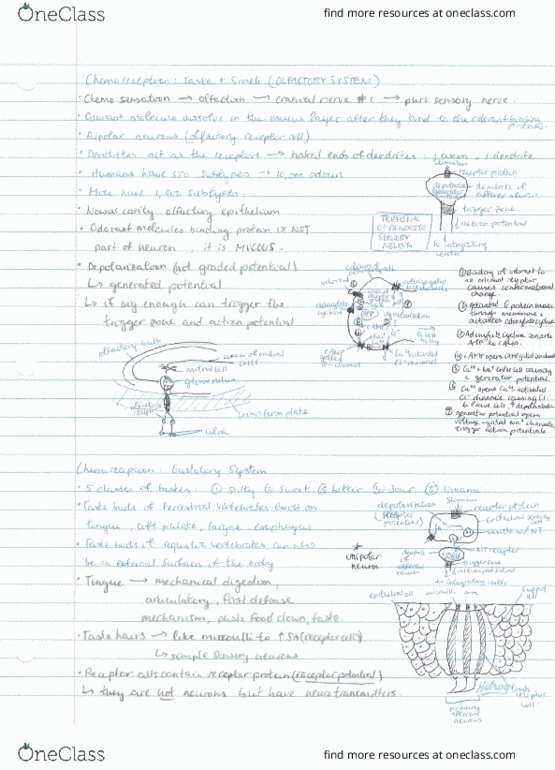 OneClass
find more resources at oneclass.com
Chemoreception: Taste + Smell (OLFACTORY SYSTEM)
· Chemo sensation → olfaction → cranial nerve #1 → pure sensory nerve.
· Odorant molecule dissolve in the mucus layer after they bind to the odorant binding proteins
· Bipolar neurons (olfactory receptor cell)
· Dendrites act as the receptors → naked ends of dendrites; 1 axon, 1 dendrite
· Humans have 350 subtypes → 10,000 odours
· Mice have 1,300 subtypes.
· Nasal cavity olfactory epithelium
· Odorant molecules binding protein is NOT
part of neuron; it is MUCOUS.
· Depolarization (not graded potential)
↳ generated potential
↳ if big enough can trigger the
trigger zone and action potential
stimulus
receptor protein
dendrite of
afferent neuron
trigger zone
action potential
to integrating
center
TERMINAL
OF DENDRITE
SENSORY
NEURON
① Binding of odorant to
an odorant receptor
causes conformational
change.
② Activated G protein moves
through membrane +
activates adenylate cyclase
③ Adenylate cyclase converts
ATP to cAMP.
④ cAMP opens cAMP gated channel
⑤ Ca²⁺ + Na⁺ enter cell causing
a generator potential
⑥ Ca²⁺ opens Ca²⁺ activated
Cl⁻ channels causing Cl⁻
to leave cell, ↑ depolarization
⑦ generator potential opens
voltage-gated Na⁺ channels,
trigger action potentials
olfactory bulb
axon of mitral
cells
mitral cell
glomerulus
cribriform plate
cilia
Chemoreception: Gustatory System
· 5 classes of tastes: ① salty ② sweet ③ bitter ④ sour ⑤ Umami
· Taste buds of terrestrial vertebrates exist on
tongue, soft palate, larynx, esophagus
· Taste buds of aquatic vertebrates can also
be in external surfaces of the body
· Tongue → mechanical digestion,
articulatory, first defense
mechanism, push food down, taste.
· Taste hairs → like microvilli to ↑ SA (receptor cells)
↳ sample sensory neurons
· Receptor cells contain receptor protein (receptor potential)
↳ they are not neurons but have neurotransmitters.
stimulus
depolarization
(receptor
potential)
receptor protein
vesicle w/ NT
NT receptor
trigger zone
action potential
unipolar
neuron
afferent
neuron
support
cell
primary
afferent
neurons
OneClass
find more resources at oneclass.com